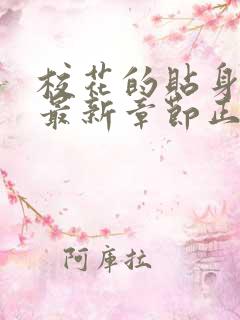 校花的贴身
最新章节正
阿库拉